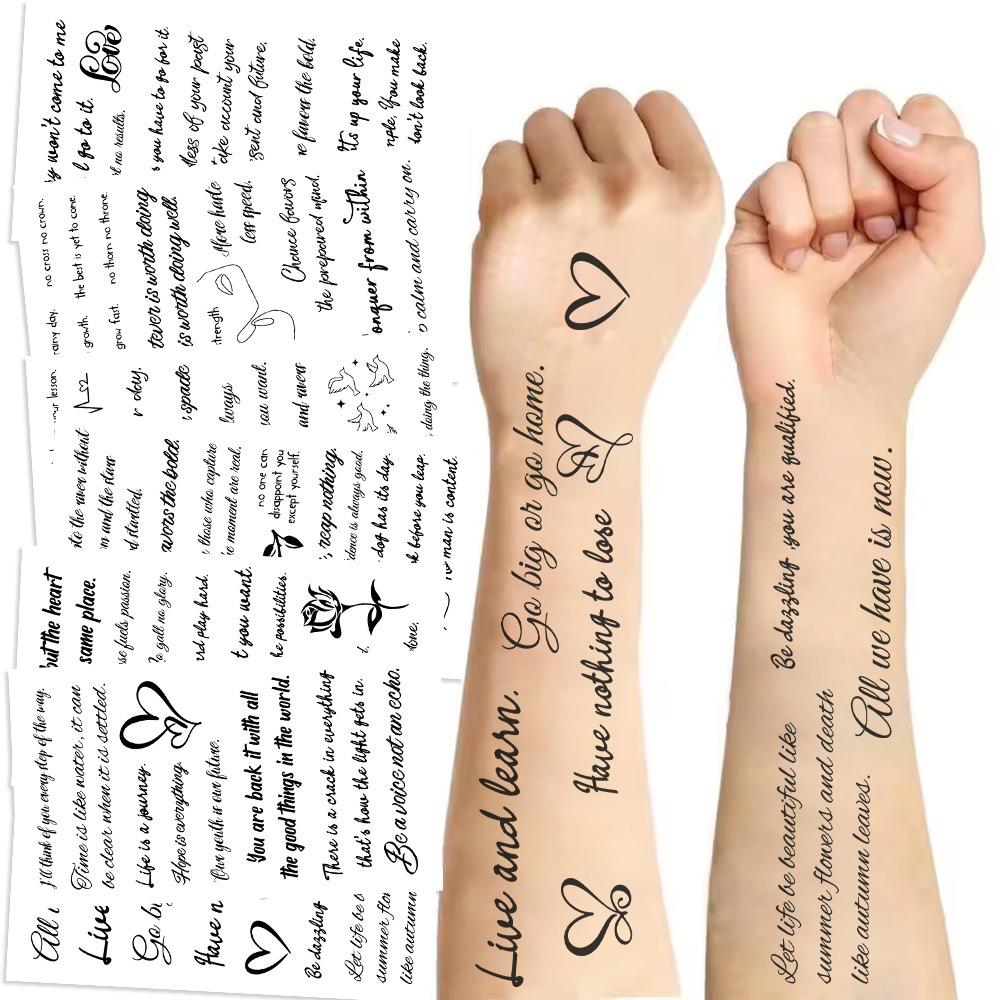 y won't come to me
l go to it.
Love
t no results.
s you have to go for it.
dless of your past
take account your
sent and future,
re favors the bold.
It's up your life.
mple. You make
don't look back.
rainy day. no cross no crown.
growth. the best is yet to come
grow fast. no thorn no throne
tever is worth doing
is worth doing well.
trength
More haste
less speed.
Chance favors
the prepared mind.
onquer from within
p calm and carry on.
ur lesson.
r day.
spade
lways
you want.
and waver
doing the thing.
ite the river without
m and the slow
d startled.
avors the bold.
those who capture
e moment are real.
no one can
disappoint you
except yourself.
reap nothing.
idence is always good.
dog has its day.
k before you leap.
man is content.
but the heart
same place.
se fuels passion.
o gall no glory.
nd play hard.
t you want.
he possibilities.
lone.
I'll think of you every step of the way.
Time is like water, it can
be clear when it is settled.
Life is a journey.
Hope is everything.
Our youth is our future.
You are back it with all
the good things in the world.
There is a crack in everything
that's how the light gets in.
Be a voice not an echo.
All
Live
Go bi
Have n
Be dazzling
Let life be b
summer flo
like autumn
Live and learn.
Go big or go home.
Have nothing to lose
Be dazzling .you are qualified.
All we have is now.
Let life be beautiful like
summer flowers and death
like autumn leaves.